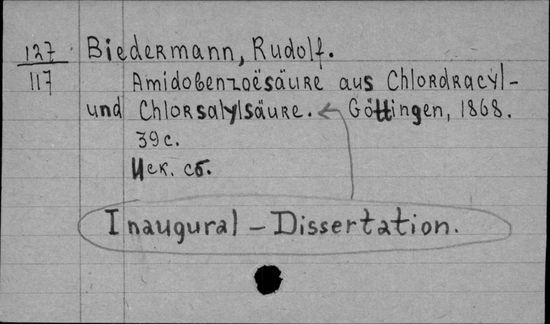 127 Biedermann, Rudolf.
117 Amidobenzoësäure aus Chlordracyl-
und Chlorsalylsäure. Göttingen, 1868.
39 с.
Иск. сб.
Inaugural - Dissertation.